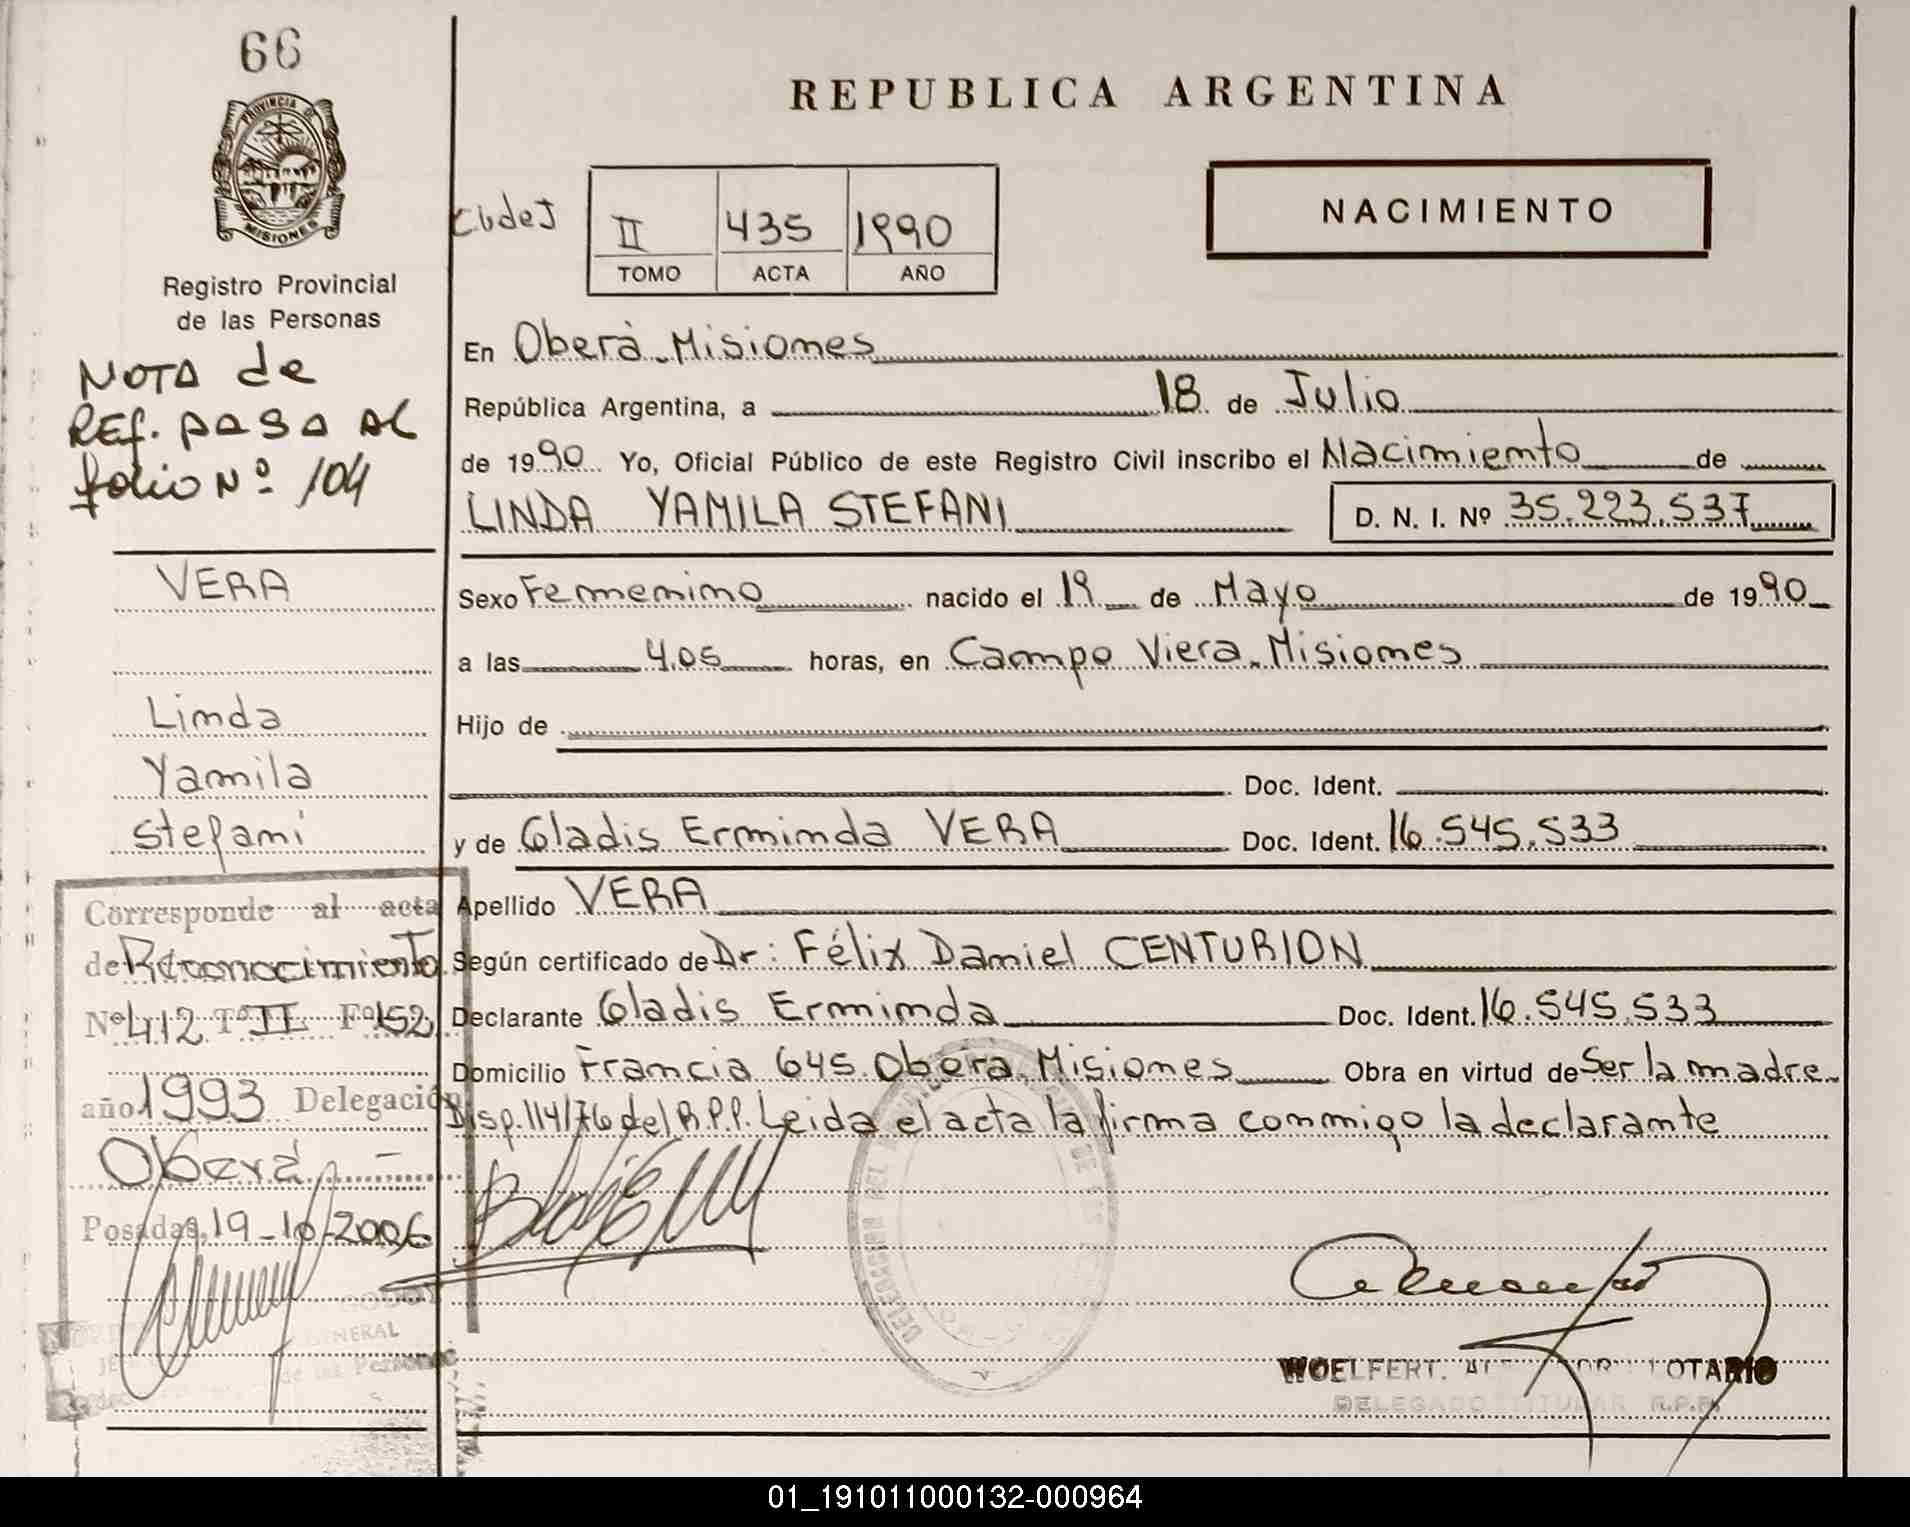 66
PROVINCIA DE
MISIONES
Registro Provincial
de las Personas
NOTA de
REF. PASA AL
folio Nº 104
VERA
Linda
Yamila
Stefani
Corresponde al acta
de Reconocimiento
Nº 412 Tº II Fº 152
año 1993 Delegación
Oberá.-
Posadas, 19-10-2006
GENERAL
de las Personas
REPUBLICA ARGENTINA
II 435 1990
TOMO ACTA AÑO
NACIMIENTO
En Oberà-Misiones
República Argentina, a 18 de Julio
de 1990 Yo, Oficial Público de este Registro Civil inscribo el Nacimiento de
LINDA YAMILA STEFANI D. N. I. Nº 35.223.537
Sexo Femenino nacido el 19 de Mayo de 1990
a las 4.05 horas, en Campo Viera-Misiones
Hijo de
Doc. Ident.
y de Gladis Erminda VERA Doc. Ident. 16.545.533
Apellido VERA
Según certificado de Dr: Félix Daniel CENTURION
Declarante Gladis Erminda Doc. Ident. 16.545.533
Domicilio Francia 645. Oberà-Misiones Obra en virtud de Ser la madre.
Disp. 114/76 del R.P.P. Leida el acta la firma conmigo la declarante
DELEGACION DEL
WOELFERT.
DELEGADO TITULAR R.P.P.
01_191011000132-000964